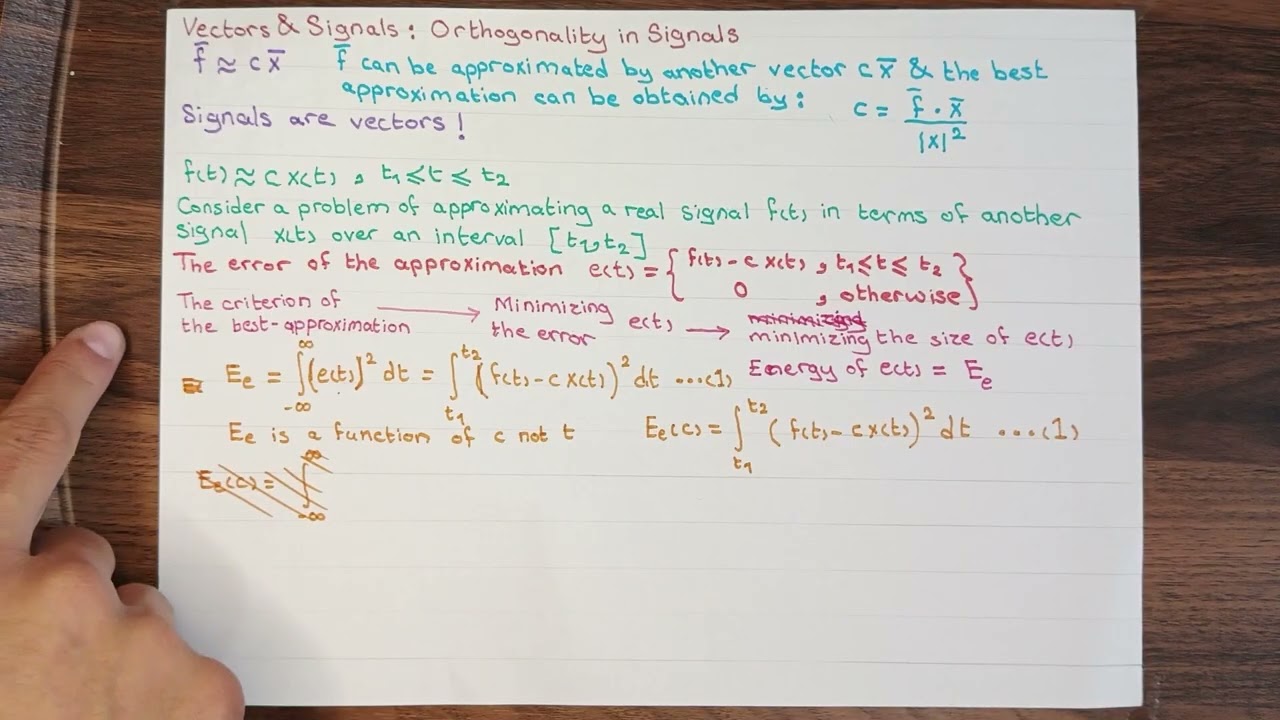 Vectors & Signals : Orthogonality in Signals
f̅ ≈ c x̅ f̅ can be approximated by another vector c x̅ & the best
approximation can be obtained by : c = f̅ · x̅ / |x|²
Signals are vectors !
f(t) ≈ c x(t) , t₁ ⩽ t ⩽ t₂
Consider a problem of approximating a real signal f(t) in terms of another
signal x(t) over an interval [t₁, t₂]
The error of the approximation e(t) = { f(t) - c x(t) , t₁ ⩽ t ⩽ t₂
0 , otherwise }
The criterion of the best-approximation → Minimizing the error e(t) → minimizing the size of e(t)
Energy of e(t) = Eₑ
Eₑ = ∫_{-∞}^{∞} (e(t)]² dt = ∫_{t₁}^{t₂} (f(t) - c x(t))² dt ...(1)
Eₑ is a function of c not t Eₑ(c) = ∫_{t₁}^{t₂} (f(t) - c x(t))² dt ...(1)
Eₑ(c) = ∫_{-∞}^{∞}